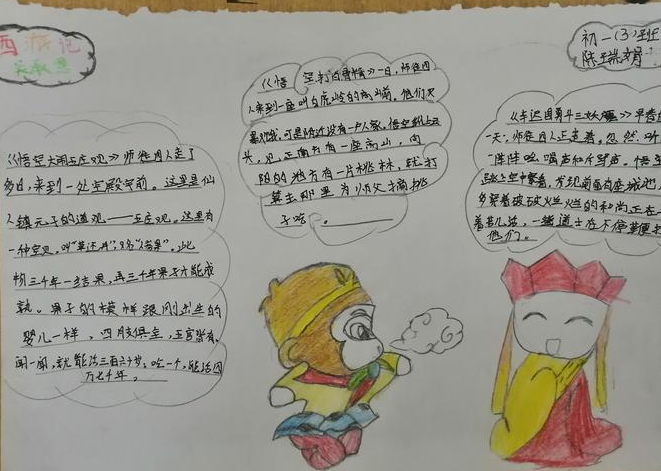 西游记
吴承恩
初一(3)班
《悟空大闹五庄观》师徒四人走了
多日,来到一处宝殿宇前。这里是仙
人镇元子的道观——五庄观。这里有
一种宝贝,叫"草还丹",又名"人参果"。此
物三千年一结果,再三千年果子才能成
熟。果子的模样跟刚出生的
婴儿一样,四肢俱全,五官皆有,
闻一闻,就能活三百六十岁;吃一个,能活四
万七千年。
《悟空三打白骨精》一日,师徒四
人来到一座叫白虎岭的高山前。他们又
可是附近没有一户人家,悟空跳上云
头,见正南方有一座高山,向
阳的地方有一片桃林,就打
算去那里为师父摘桃
子吃。
一天,师徒四人正走着,忽然,听
一阵阵吆喝声和号声。悟空
跳上空中察看,发现前面有座城池,
多穿着破破烂烂的和尚正在
他们。